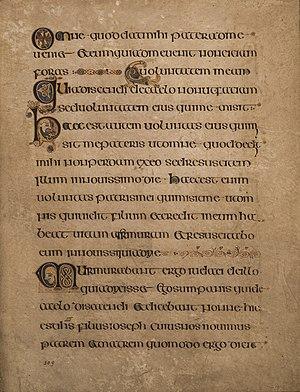 Omne quod dat mihi pater ad me
ueniet & eum qui ad me uenit non eieciam
foras uoluntatem meam
Quia discendi de caelo non ut faciam
sed uoluntatem eius qui me misit
Haec est autem uoluntas eius qui mi
sit me patris ut omne quod dedit
mihi non perdam ex eo sed resuscitem
illum in nouissimo die · Haec est enim
uoluntas patris mei qui misit me ut om
nis qui uidet filium & credit in eum ha
beat uitam aeternam & resuscitabo
eum in nouissimo die
Murmurabant ergo iudaei de illo
quia dixisset Ego sum panis qui de
caelo discendi & dicebant nonne hic
est filius ioseph cuius nos nouimus
patrem & matrem quomodo ergo dicit
309